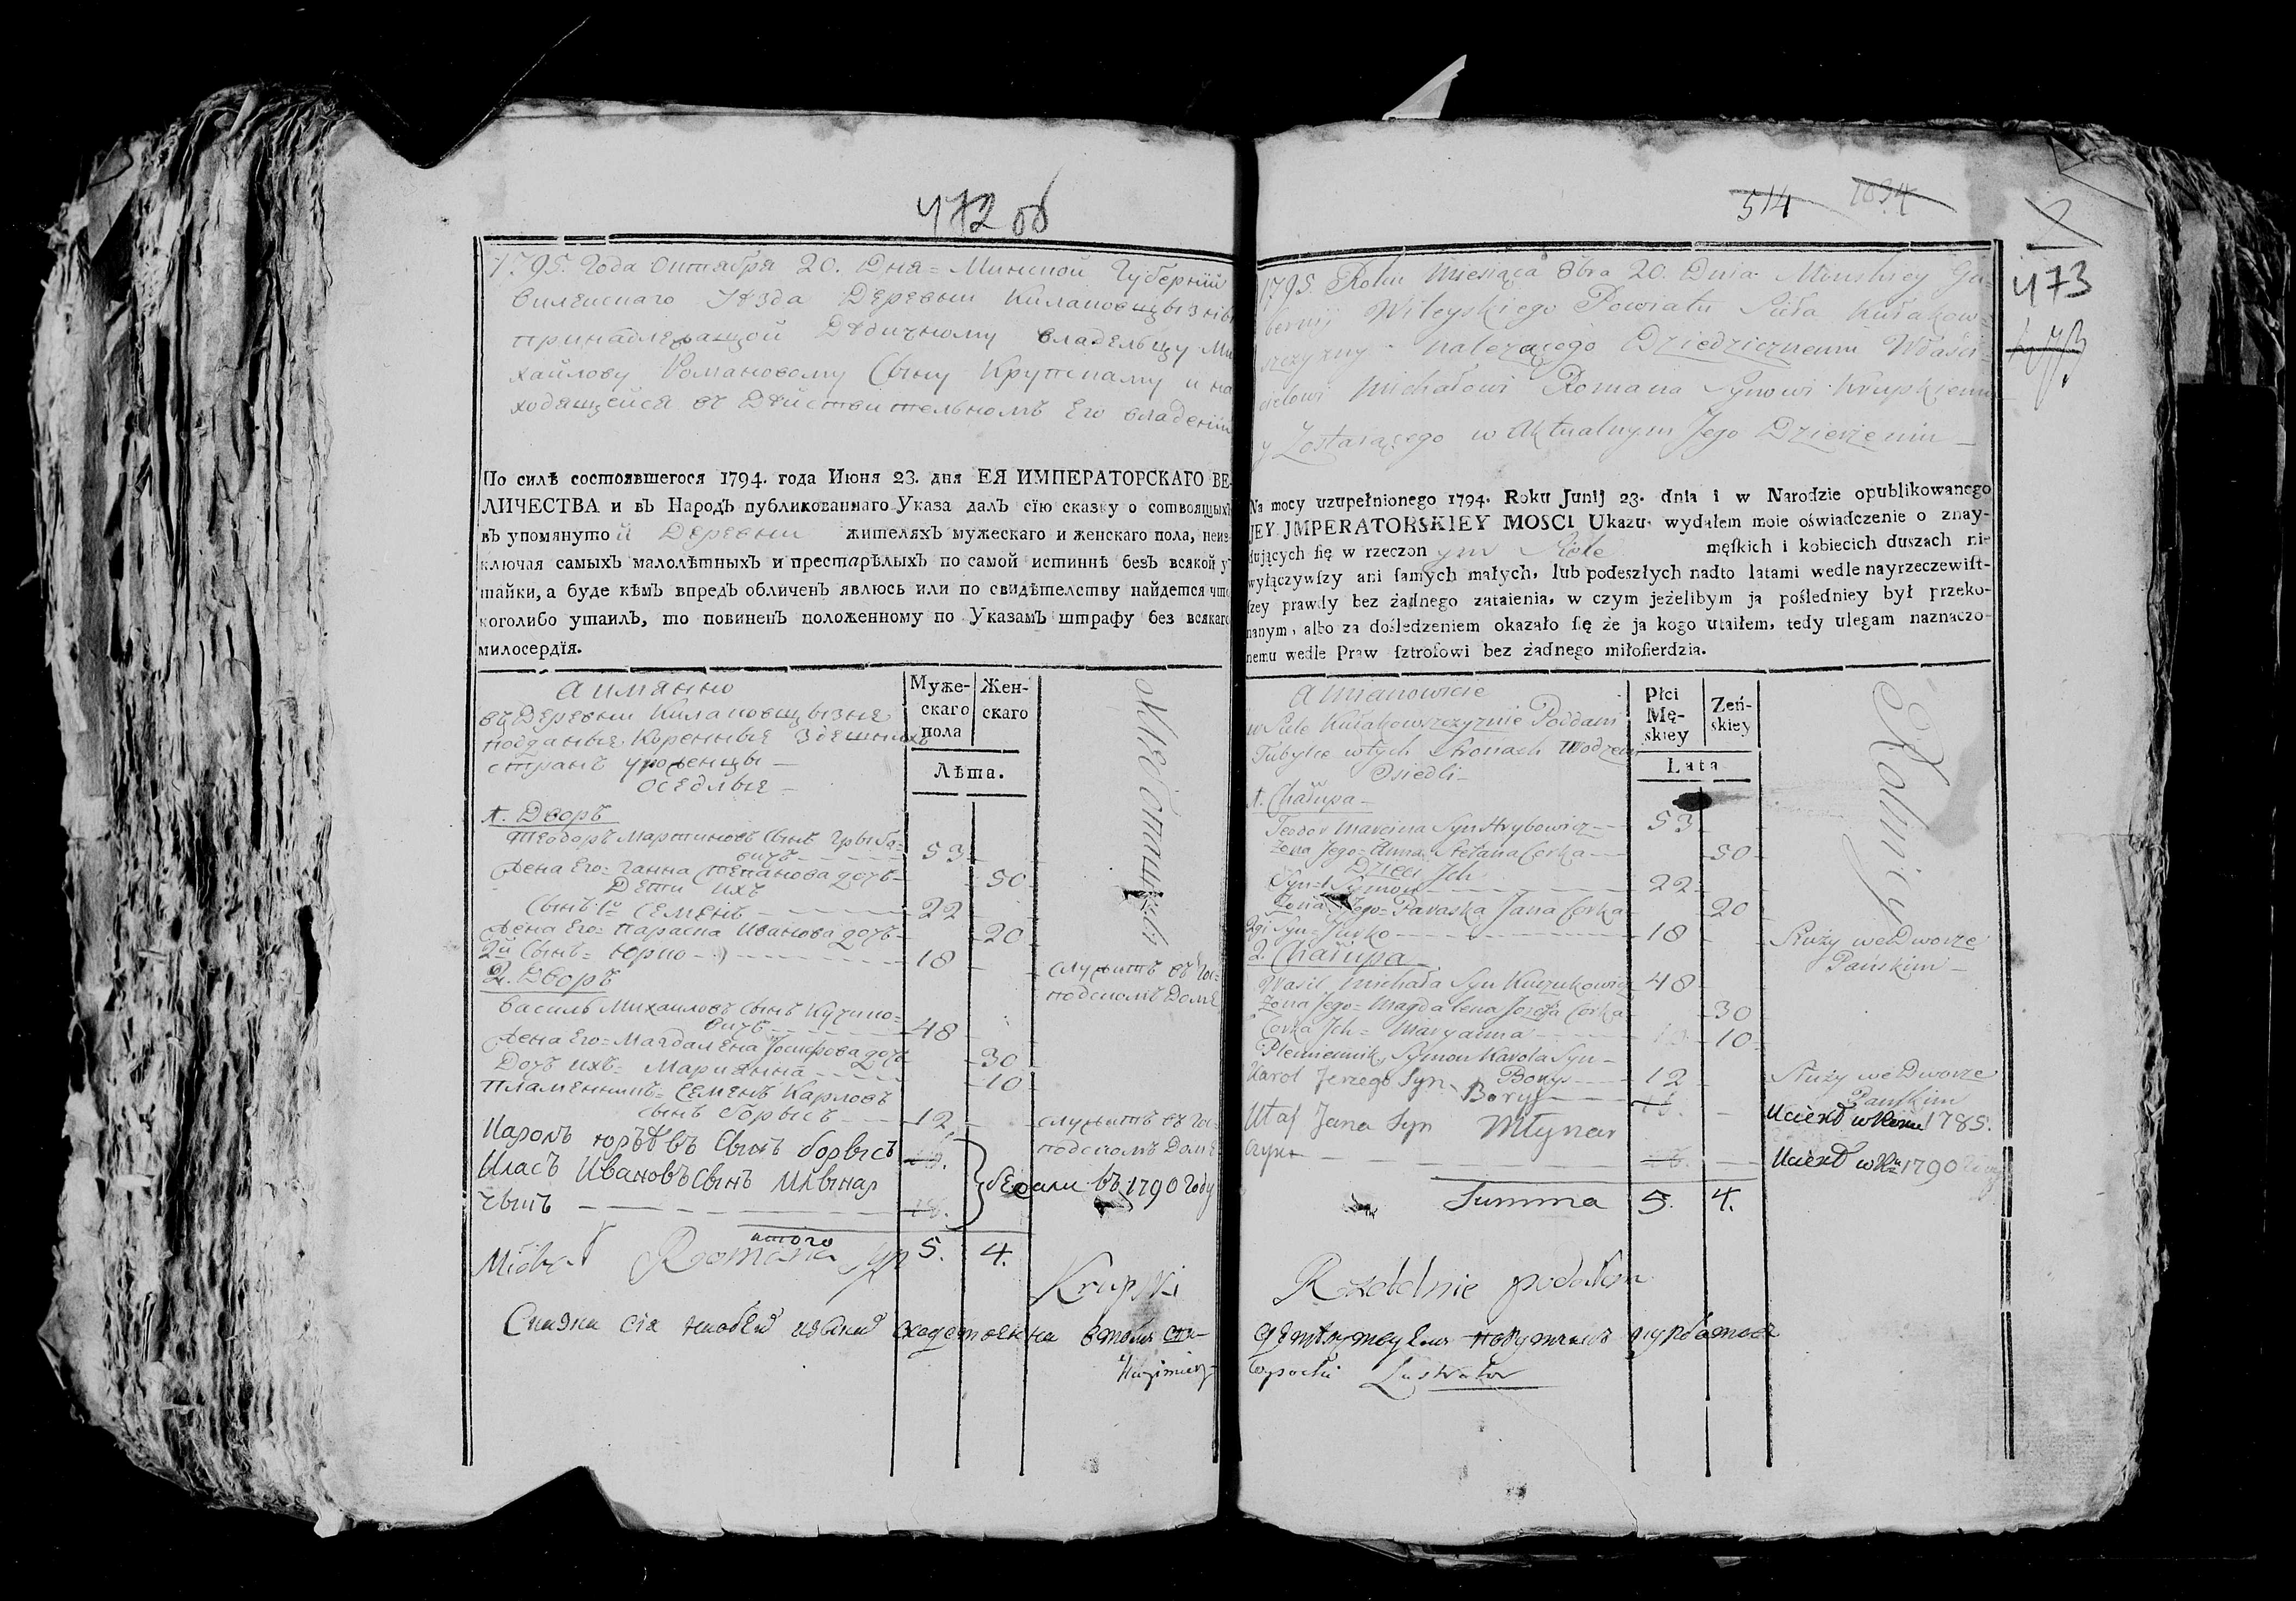 472 об
1795. Года Октября 20. Дня = Минской Губернїи
Вилейскаго Уѣзда Деревни Кулаковщызны
принадлежащой Дѣдичному владельцу Ми
хайлову Романовому Сыну Крупскому и на
ходящейся въ Дѣйствительномъ Его владенїи
По силѣ состоявшегося 1794. года Июня 23. дня ЕЯ ИМПЕРАТОРСКАГО ВЕ-
ЛИЧЕСТВА и въ Народъ публикованнаго Указа далъ сїю сказку о сотвоящыхъ
въ упомянутой Деревни жителяхъ мужескаго и женскаго пола, неиз-
ключая самыхъ малолѣтныхъ и престарѣлыхъ по самой истиннѣ безъ всякой у
тайки, а буде кѣмъ впредъ обличенъ явлюсь или по свидѣтелству найдется что
коголибо утаилъ, то повиненъ положенному по Указамъ штрафу без всякаго
милосердїя.
а имянно
въ Деревни Кулаковщызне
подданые Коренные здешныхъ
странъ уроженцы —
оседлые —
Муже-
скаго
пола
Жен-
скаго
Лѣта.
1. Дворъ
Теодоръ Мартиновъ Сынъ Грыбо=
вичъ 53
Жена Его = Ганна Степанова дочь 50
Дети ихъ
Сынъ 1й Семенъ 22
Жена Его = Параска Иванова дочь 20
2й Сынъ = Юрко 18 служитъ въ Гос=
подскомъ Доме
2. Дворъ
Василь Михайловъ Сынъ Кучуко=
вичъ 48
Жена Его = Магдалена Іосифова дочь 30
Дочь ихъ = Марианна 10
Пламенникъ = Семенъ Карловъ
сынъ Борысъ 12 служитъ въ Гос=
подскомъ Доме
Каролъ Юрьевъ Сынъ Борысъ
Иванов Сынъ Млынар
чыкъ бежали въ 1790 Году
итого 5. 4.
Michał Romana Syn Krupski
514 1894
473
1795. Roku Miesiąca 8bra 20. Dnia Minskiey Gu=
bernij Wileyskiego Powiatu Sioła Kułakow=
szczyzny należącego Dziedzicznemu Właści=
cielowi Michałowi Romana Synowi Krupskiemu
y Zostaiącego w Aktualnym Jego Dzierżeniu —
Na mocy uzupełnionego 1794. Roku Junij 23. dnia i w Narodzie opublikowanego
JEY JMPERATORSKIEY MOSCI Ukazu, wydałem moie oświadczenie o znay-
dujących ſię w rzeczonym Siole męſkich i kobiecich duszach ni-
wyłączywſzy ani ſamych małych, lub podeszłych nadto latami wedle nayrzeczewiſt-
ſzey prawdy bez żadnego zataienia, w czym jeżelibym ja pośledniey był przeko-
nanym, albo za dośledzeniem okazało ſię że ja kogo utaiłem, tedy ulegam naznaczo-
nemu wedle Praw ſztrofowi bez żadnego miłoſierdzia.
a mianowicie
w Siele Kułakowszczyznie Poddani
Tubylce w tych Stronach
Osiedli —
Płci
Mę-
skiey
Zeń-
skiey
Lata
Rolnicy
1. Chałupa —
Teodor Marcina Syn Hrybowicz 53
Żona Jego = Anna Stefana Corka 50
Dzieci Jch
Syn 1 Symon 22
Żona Jego = Paraska Jana Corka 20
2gi Syn = Jurko 18 Służy we Dworze
Pańskim —
2. Chałupa
Wasil Michała Syn Kuczukowicz 48
Żona Jego = Magdalena Jozefa Corka 30
Corka Jch = Maryanna 10
Plemiennik Symon Karola Syn —
Borys 12 Służy we Dworze
Pańskim
Karol Jerzego Syn Borys Uciekł w Roku 1785.
Jana Syn Młynar
czyk Uciekł w Rᵘ 1790
Summa 5. 4.
Lustrator